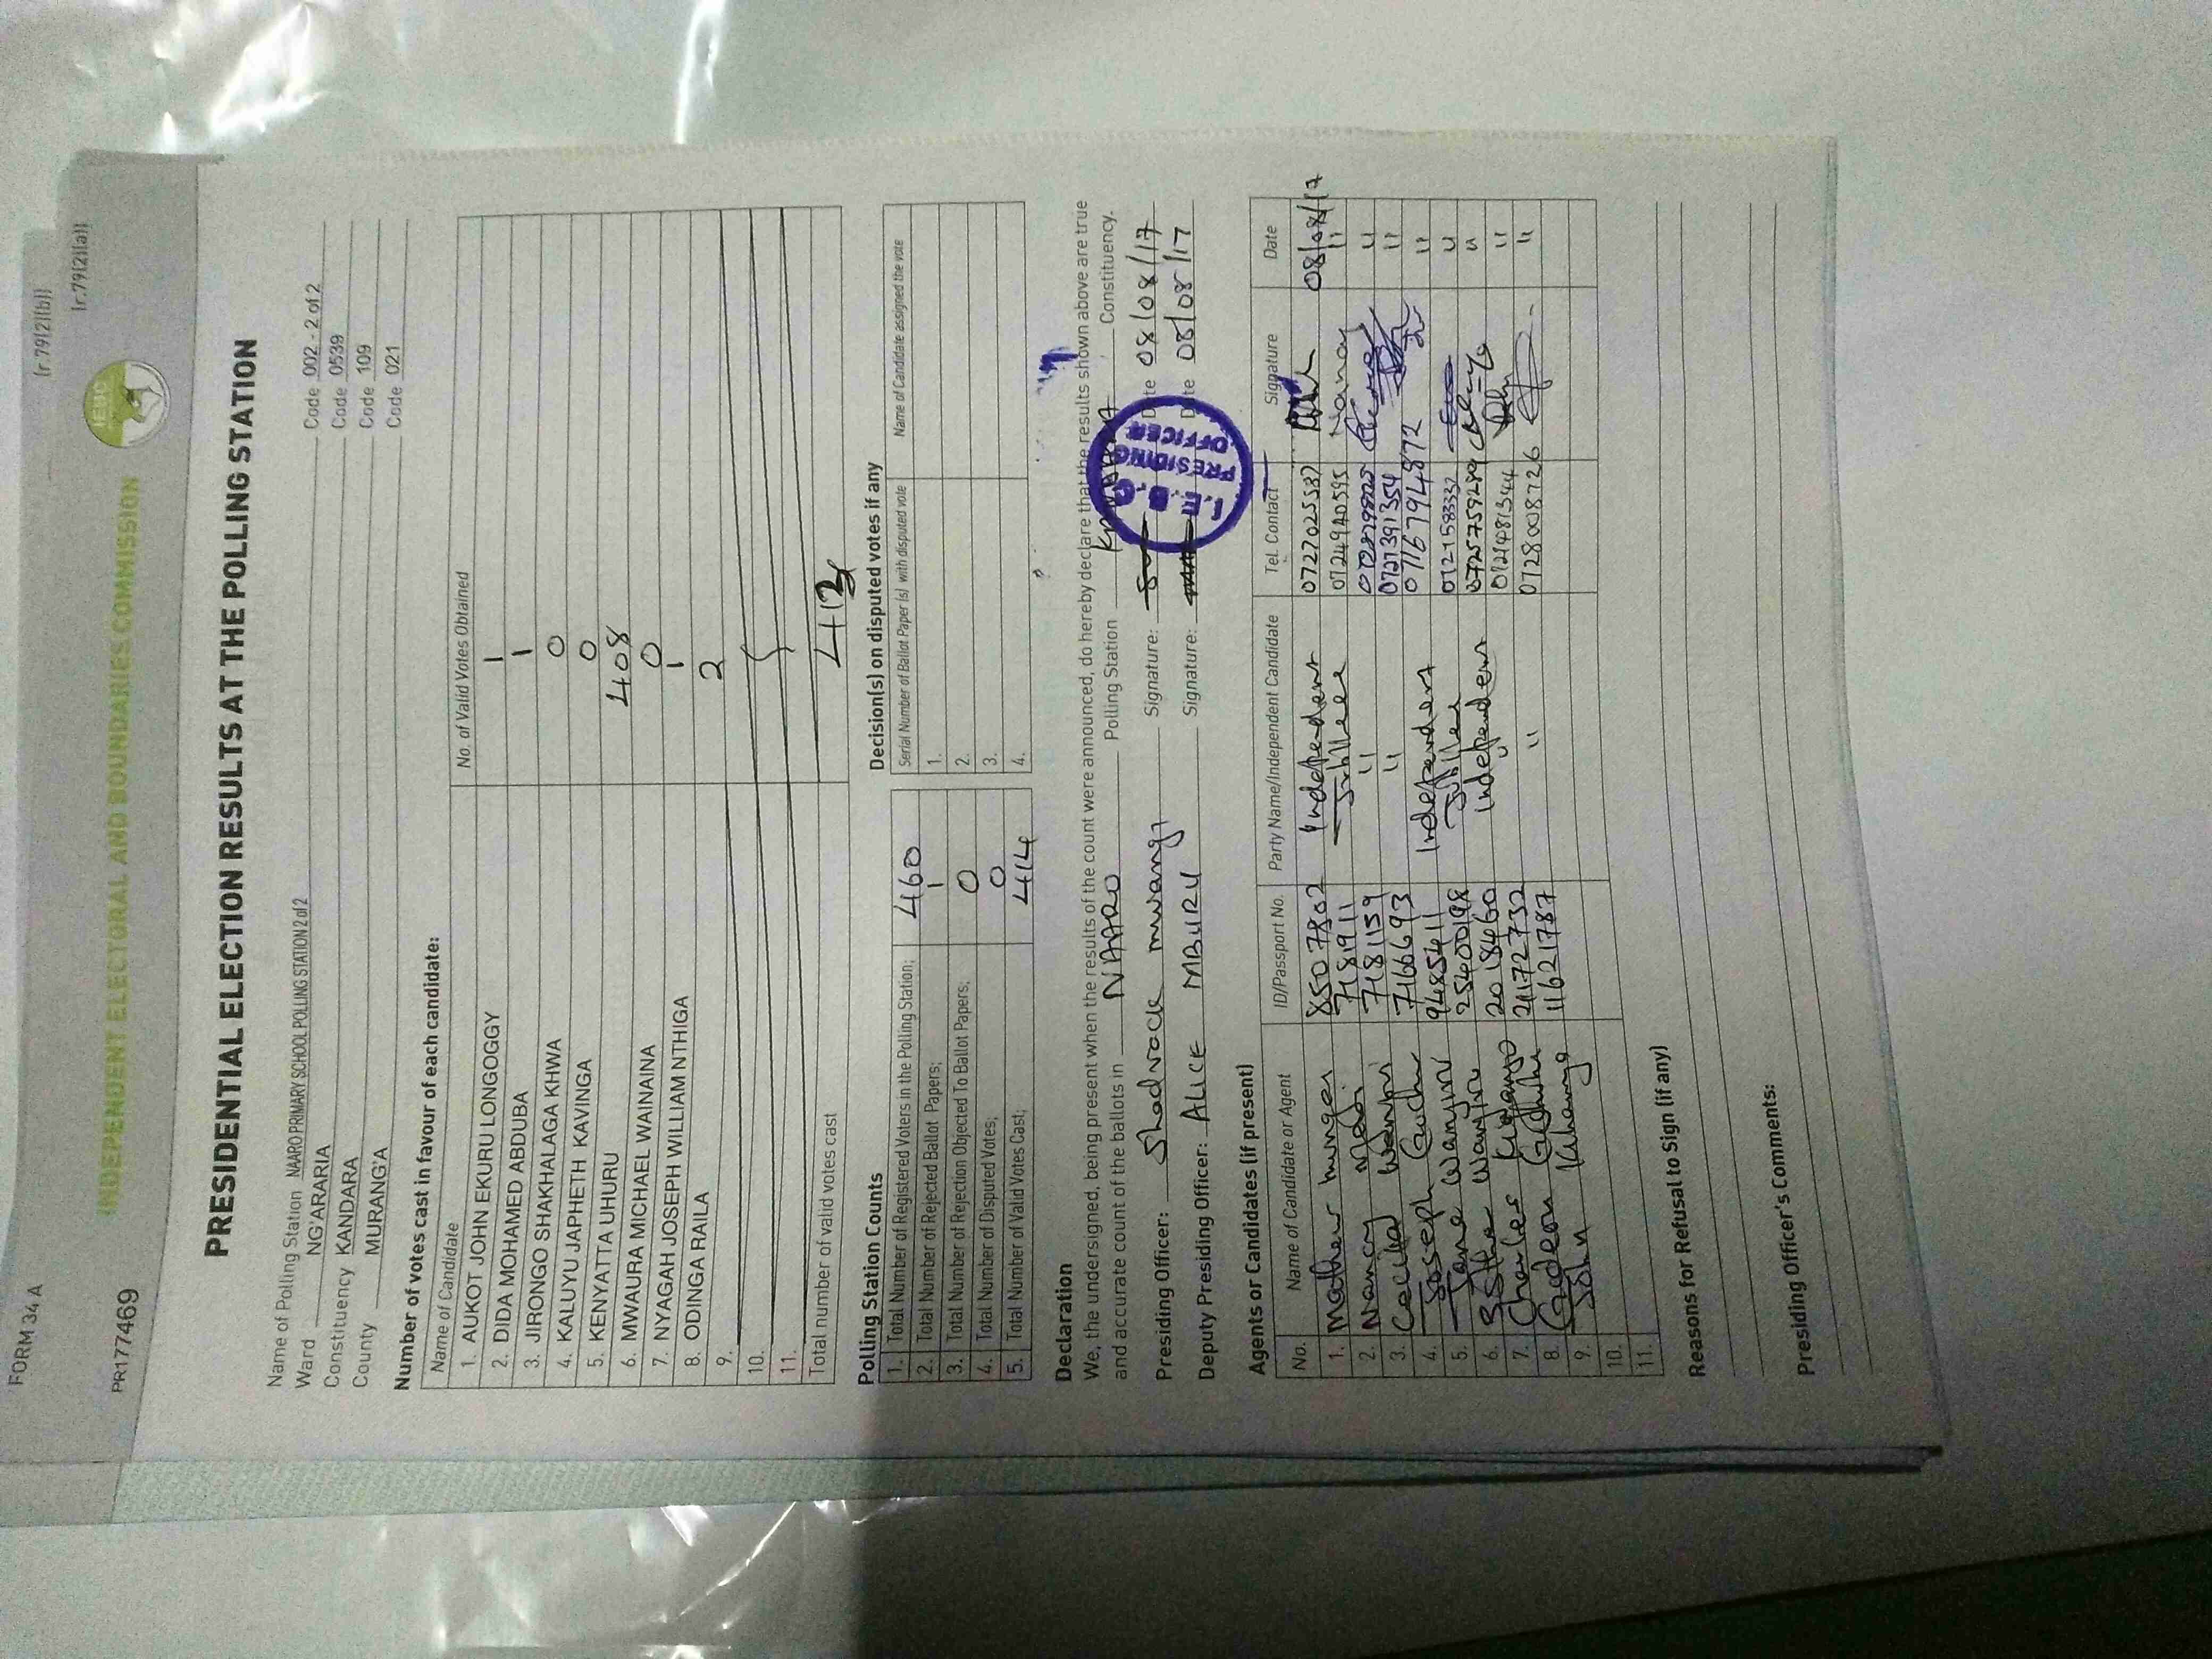 (r.79(2)(b))
FORM 34 A
(r.79(2)(a))
IEBC
INDEPENDENT ELECTORAL AND BOUNDARIES COMMISSION
PR177469
PRESIDENTIAL ELECTION RESULTS AT THE POLLING STATION
Name of Polling Station NAARO PRIMARY SCHOOL POLLING STATION 2 of 2 Code 002 - 2 of 2
Ward NG'ARARIA Code 0539
Constituency KANDARA Code 109
County MURANG'A Code 021
Number of votes cast in favour of each candidate:
Name of Candidate No. of Valid Votes Obtained
1. AUKOT JOHN EKURU LONGOGGY 1
2. DIDA MOHAMED ABDUBA 1
3. JIRONGO SHAKHALAGA KHWA 0
4. KALUYU JAPHETH KAVINGA 0
5. KENYATTA UHURU 408
6. MWAURA MICHAEL WAINAINA 0
7. NYAGAH JOSEPH WILLIAM NTHIGA 1
8. ODINGA RAILA 2
9.
10.
11.
Total number of valid votes cast
Polling Station Counts
1. Total Number of Registered Voters in the Polling Station; 460
2. Total Number of Rejected Ballot Papers; 1
3. Total Number of Rejection Objected To Ballot Papers; 0
4. Total Number of Disputed Votes; 0
5. Total Number of Valid Votes Cast; 414
Decision(s) on disputed votes if any
Serial Number of Ballot Paper (s) with disputed vote Name of Candidate assigned the vote
1.
2.
3.
4.
Declaration
We, the undersigned, being present when the results of the count were announced, do hereby declare that the results shown above are true
and accurate count of the ballots in NAARO Polling Station Constituency.
Presiding Officer: Shadrack mwangi Signature: Date 08/08/17
Deputy Presiding Officer: ALICE MBURU Signature: Date 08/08/17
I.E.B.C
PRESIDING
OFFICER
Agents or Candidates (if present)
No. Name of Candidate or Agent ID/Passport No. Party Name/Independent Candidate Tel. Contact Signature Date
1. Mathew 8507802 Independent 0722702553 08/08/17
2. Nancy 7181911 Jubilee 0724940595 Nancy "
3. Cecilia 7181159 " "
4. Joseph 7166693 " 0727391354 "
5. Jane Wanjiru 9485411 Independent 0716794872 "
6. Esther Wanjiru 25400198 Jubilee 0721583332 "
7. Charles 20118460 Independent 0725759289 "
8. Gideon 21172732 " "
9. John 11621787 " 0728008726 "
10.
11.
Reasons for Refusal to Sign (if any)
Presiding Officer's Comments: